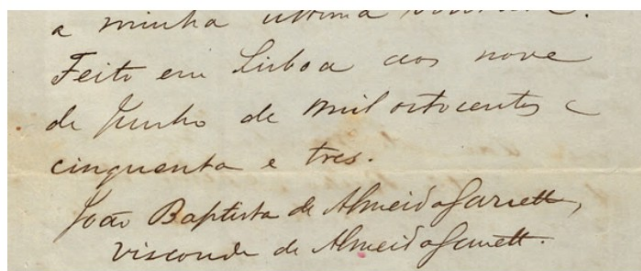 a minha ultima vontade.
Feito em Lisboa aos nove
de Junho de mil oitocentos e
cinquenta e tres.
João Baptista de Almeida Garrett,
Visconde de Almeida Garrett.